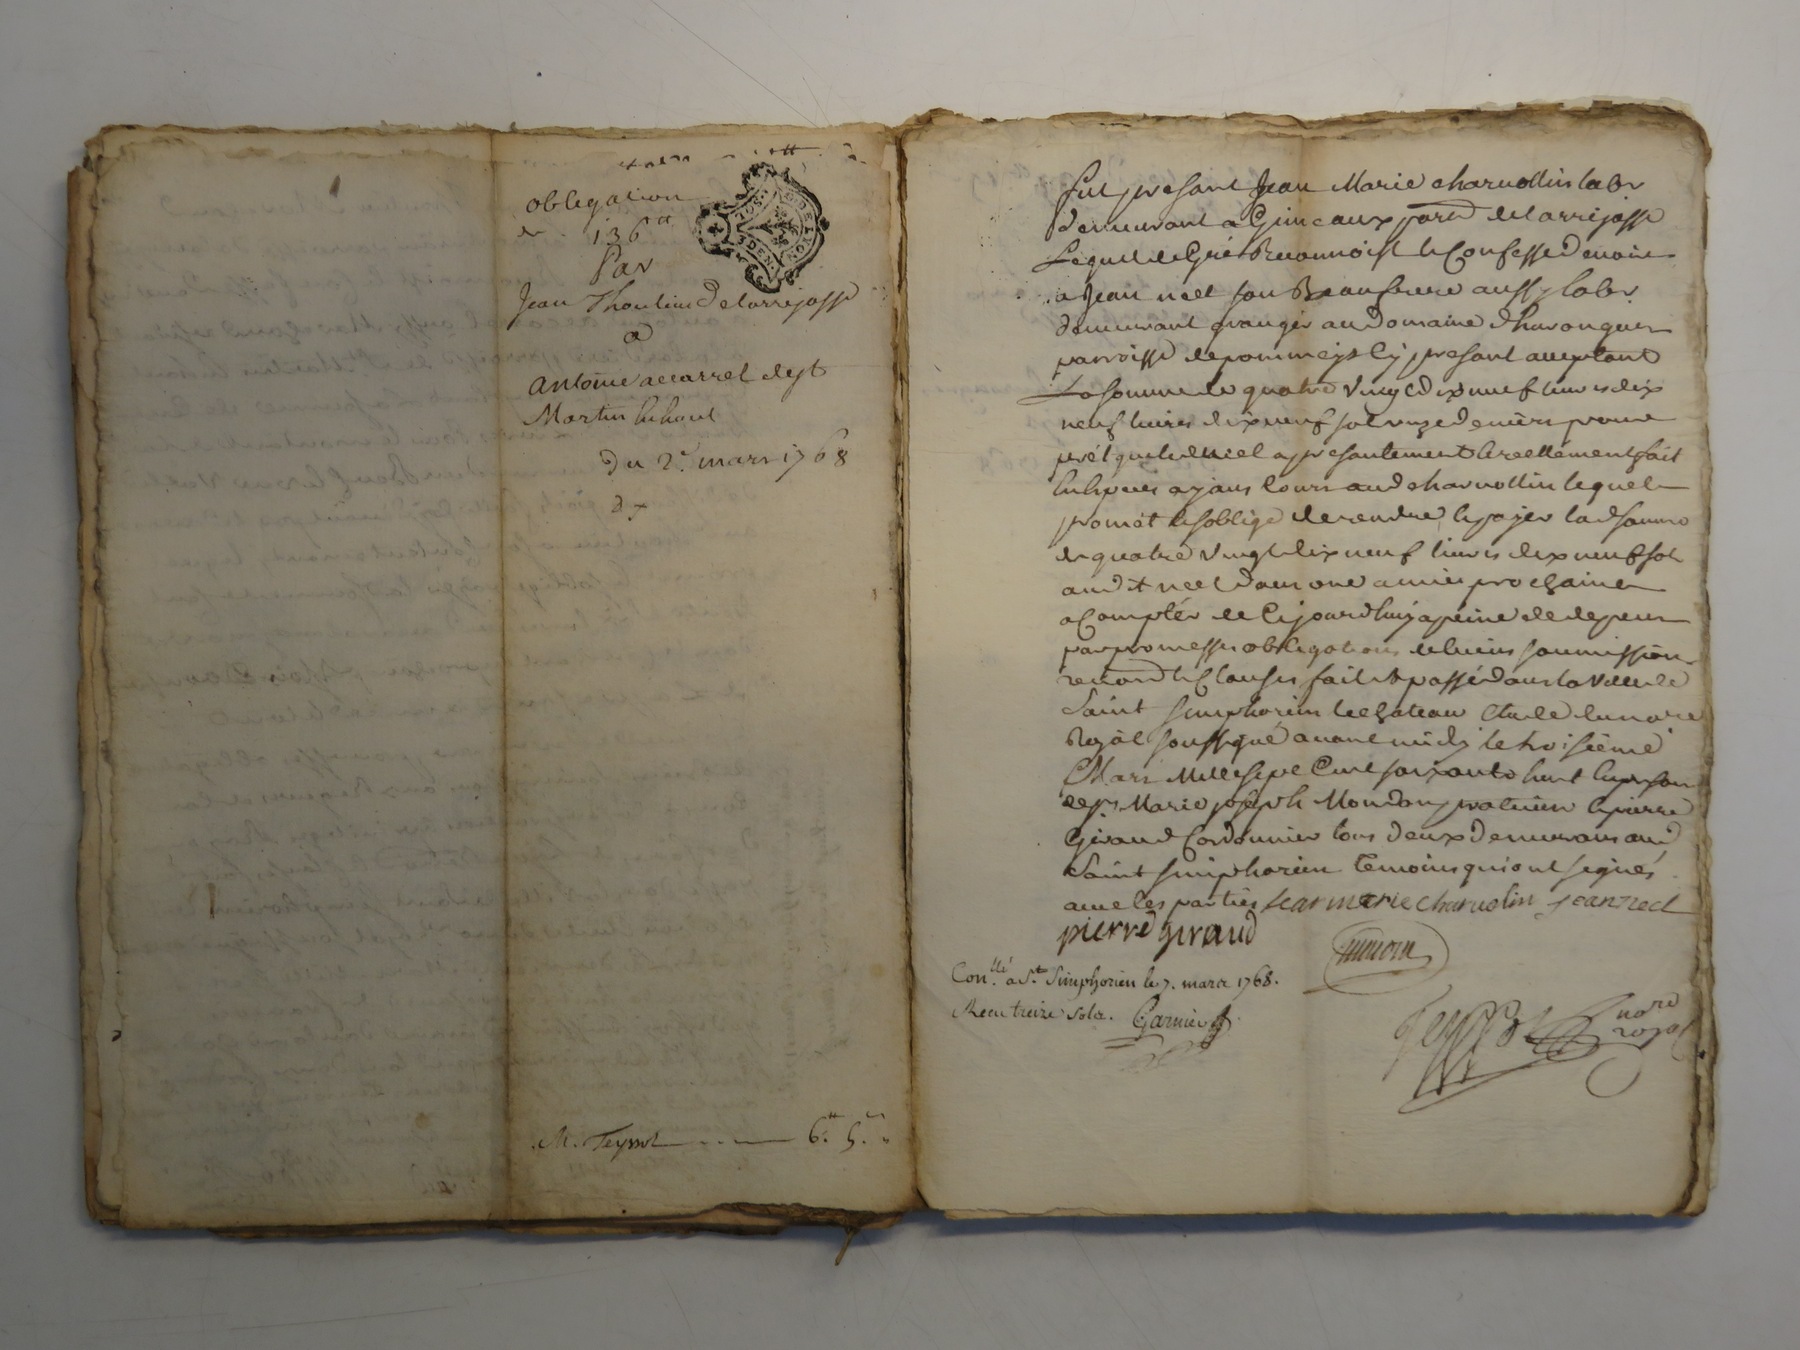 obligation
de 136  tt
Par
Jean Thoulin de larrejasse
a
antoine accarrel de st
Martin
du 2e mars 1768
M. Teyssot 6 tt 5 s
fut presant Jean Marie charvollin labr
demeurant a Gimeaux parse de larrejasse
Lequel de Gré Reconnoist & Confesse devoir
a Jean neel son Beaufrere aussy labr
demeurant granger au domaine
parroisse de pommeys & present aceptant
La somme de quatre vingt dix neuf livres dix
neuf livres dix neuf sol onze deniers pour
prét que led neel a presantement & reellement fait
aud charvollin lequel
promet & soblige de rendre & payer lad somme
de quatre vingt dix neuf livres dix neuf sol
aud t neel dans une année prochaine
a Compter de cejourdhuy a peine de depens
par promesses obligations de biens soumissions
renond & Clauses fait & passé dans la ville de
Saint simphorien le chateau Etude du nore
Royal soussigné avant midy le troisieme
Mars Mille sept Cent soixante huit
Marie joseph praticien & pierre
Giraud Cordonnier tous deux demeurans aud
Saint simphorien temoins qui ont signés
avec les parties jean marie charvolin jean neel
pierre giraud
Con.llé a St. Simphorien le 7. mars 1768.
Recu treize sols. Garnier
nore
royal